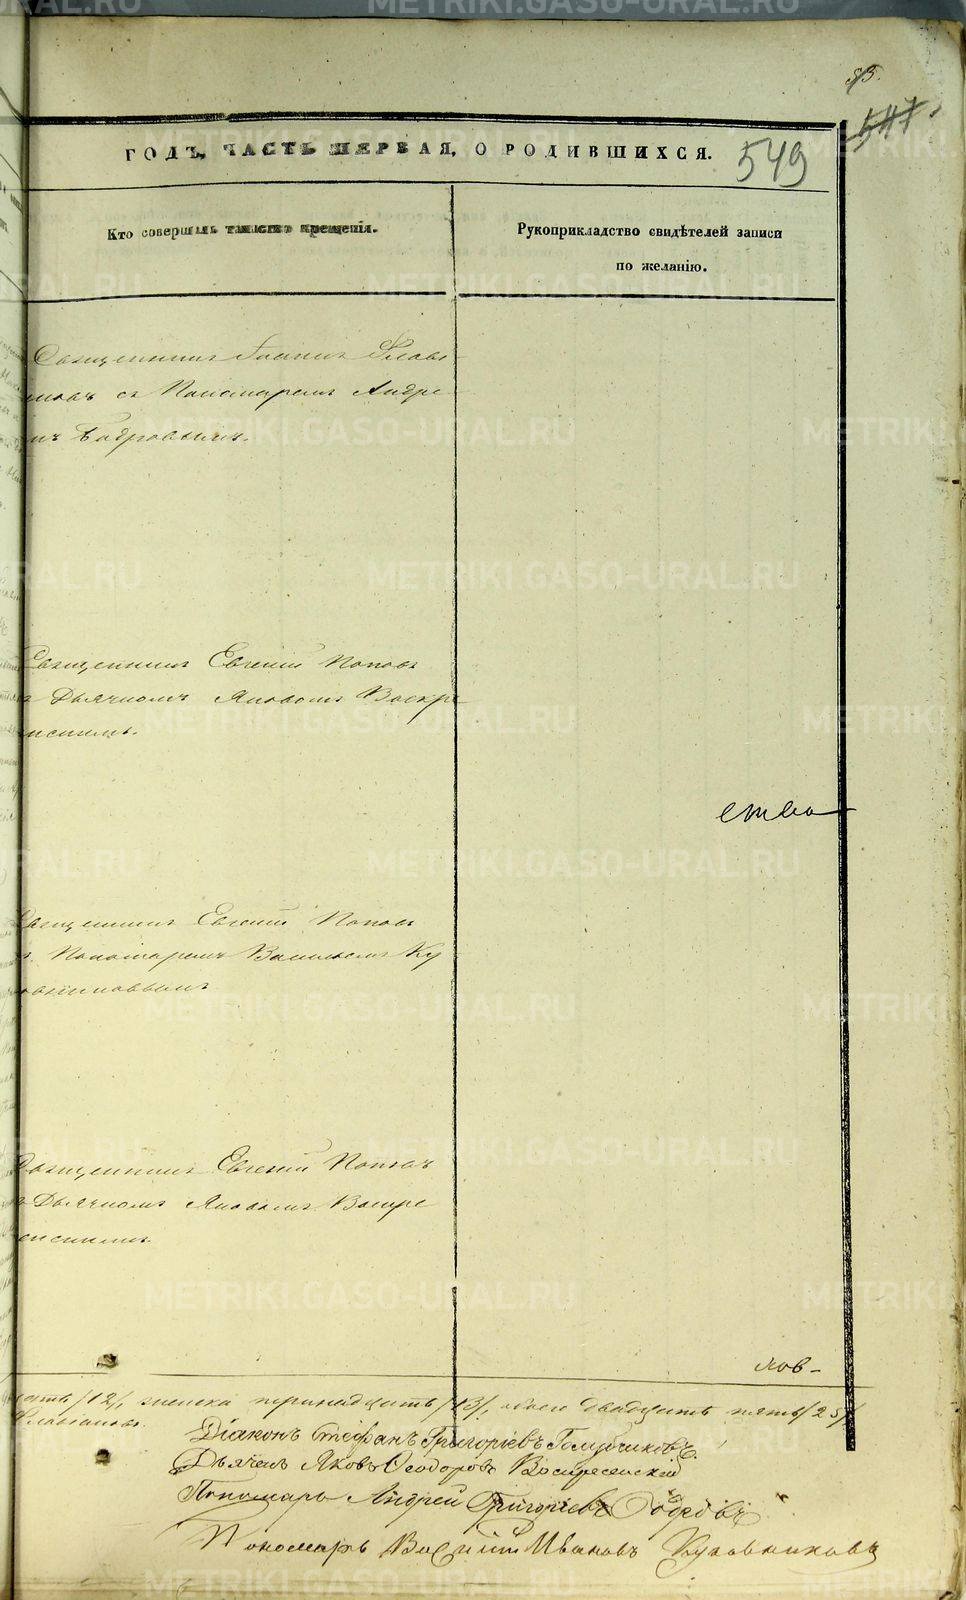 53.
547.
ГОДЪ, ЧАСТЬ ПЕРВАЯ, О РОДИВШИХСЯ.
549
Кто совершалъ таинство крещенія.
Рукоприкладство свидѣтелей записи
по желанію.
Священникъ Іоаннъ
съ Пономаремъ Андре
Бобровымъ.
Священникъ Евгеній Поповъ
Дьячкомъ Яковомъ Воскре
Священникъ Евгеній Поповъ
Пономаремъ Васильемъ Ку
Священникъ Евгеній Поповъ
Дьячкомъ Яковомъ Воскре
сенскимъ.
ства
лов-
/12/, женска тринадцать /13/, обоего двадцать пять /25/
Діаконъ Стефанъ Григоріевъ Голубчиковъ
Дьячекъ Яковъ Ѳеодоровъ Воскресенскій
Пономарь Андрей Григоріевъ Бобровъ
Пономарь Василій Ивановъ Кузовниковъ
METRIKI.GASO-URAL.RU